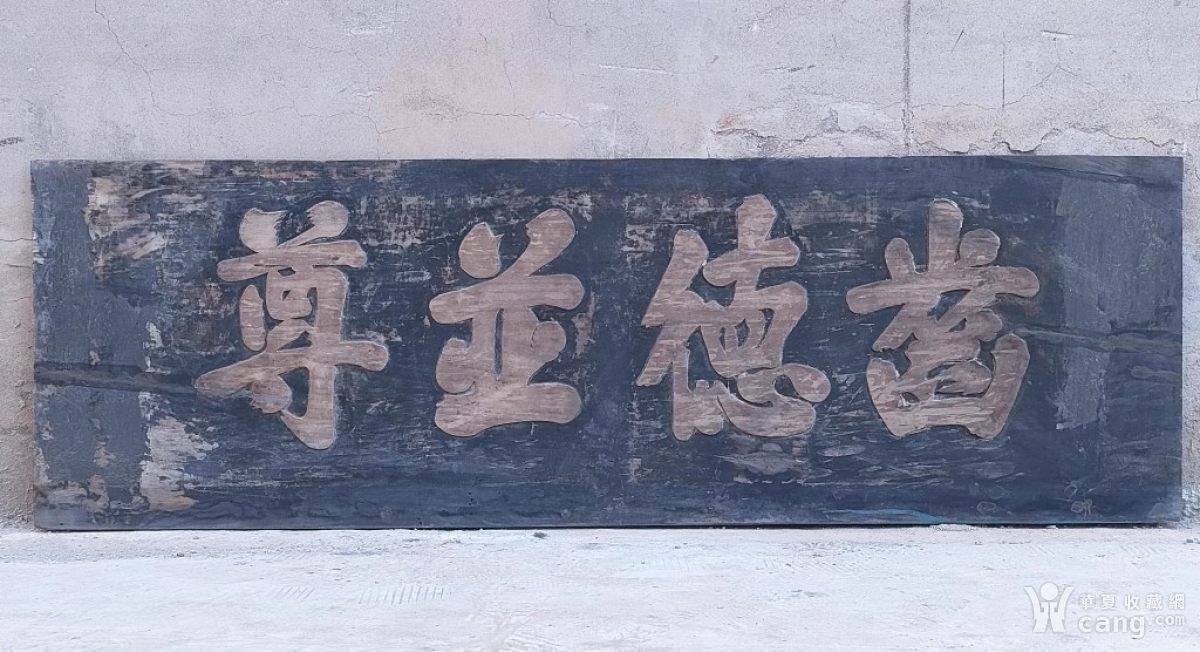 齒德並尊
華夏收藏網
cang.com